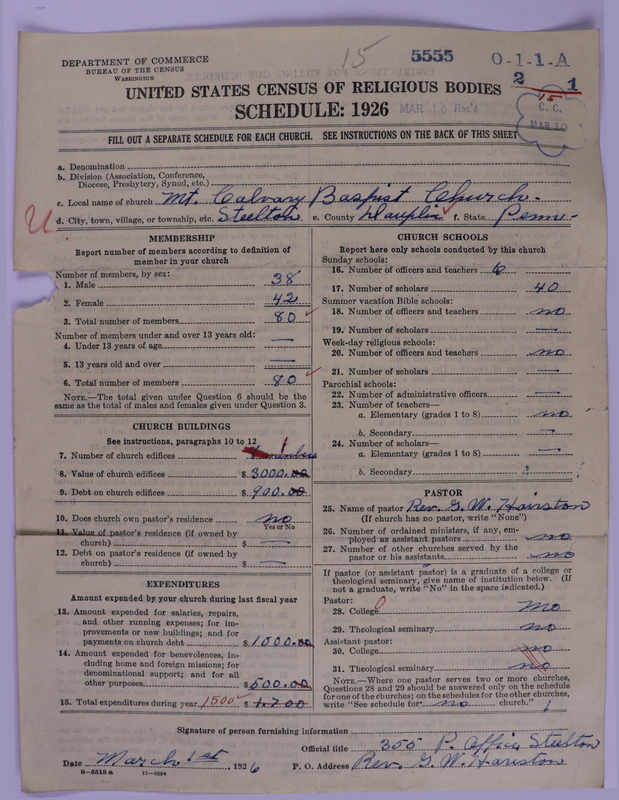 15 5555 O-1-1-A
DEPARTMENT OF COMMERCE
BUREAU OF THE CENSUS
WASHINGTON
2 1
UNITED STATES CENSUS OF RELIGIOUS BODIES
15
SCHEDULE: 1926 MAR 10 Rec'd
C. C.
MAR 10
FILL OUT A SEPARATE SCHEDULE FOR EACH CHURCH. SEE INSTRUCTIONS ON THE BACK OF THIS SHEET
a. Denomination
b. Division (Association, Conference,
Diocese, Presbytery, Synod, etc.)
c. Local name of church Mt. Calvary Baptist Church-
U
d. City, town, village, or township, etc. Steelton e. County Dauphin f. State Penn-
MEMBERSHIP
Report number of members according to definition of
member in your church
Number of members, by sex:
1. Male 38
2. Female 42
3. Total number of members 80
Number of members under and over 13 years old:
4. Under 13 years of age —
5. 13 years old and over —
6. Total number of members 80
NOTE.—The total given under Question 6 should be the
same as the total of males and females given under Question 3.
CHURCH BUILDINGS
See instructions, paragraphs 10 to 12
7. Number of church edifices 1
8. Value of church edifices $ 3000.00
9. Debt on church edifices $ 900.00
10. Does church own pastor's residence no
Yes or No
11. Value of pastor's residence (if owned by
church) $ —
12. Debt on pastor's residence (if owned by
church) $ —
EXPENDITURES
Amount expended by your church during last fiscal year
13. Amount expended for salaries, repairs,
and other running expenses; for im-
provements or new buildings; and for
payments on church debt $ 1000.00
14. Amount expended for benevolences, in-
cluding home and foreign missions; for
denominational support; and for all
other purposes $ 500.00
15. Total expenditures during year 1500 $ 1.700
CHURCH SCHOOLS
Report here only schools conducted by this church
Sunday schools:
16. Number of officers and teachers 6
17. Number of scholars 40
Summer vacation Bible schools:
18. Number of officers and teachers no
19. Number of scholars —
Week-day religious schools:
20. Number of officers and teachers no
21. Number of scholars —
Parochial schools:
22. Number of administrative officers —
23. Number of teachers—
a. Elementary (grades 1 to 8) no
b. Secondary —
24. Number of scholars—
a. Elementary (grades 1 to 8) —
b. Secondary
PASTOR
25. Name of pastor Rev. G. W. Hairston
(If church has no pastor, write "None")
26. Number of ordained ministers, if any, em-
ployed as assistant pastors no
27. Number of other churches served by the
pastor or his assistants no
If pastor (or assistant pastor) is a graduate of a college or
theological seminary, give name of institution below. (If
not a graduate, write "No" in the space indicated.)
Pastor:
28. College no
29. Theological seminary no
Assistant pastor:
30. College no
31. Theological seminary no
NOTE.—Where one pastor serves two or more churches,
Questions 28 and 29 should be answered only on the schedule
for one of the churches; on the schedules for the other churches,
write "See schedule for no church."
Signature of person furnishing information
Official title 355 P. Office Steelton
Date March 1st, 1926 P. O. Address Rev. G. W. Hairston
8—5518 a 11—9034